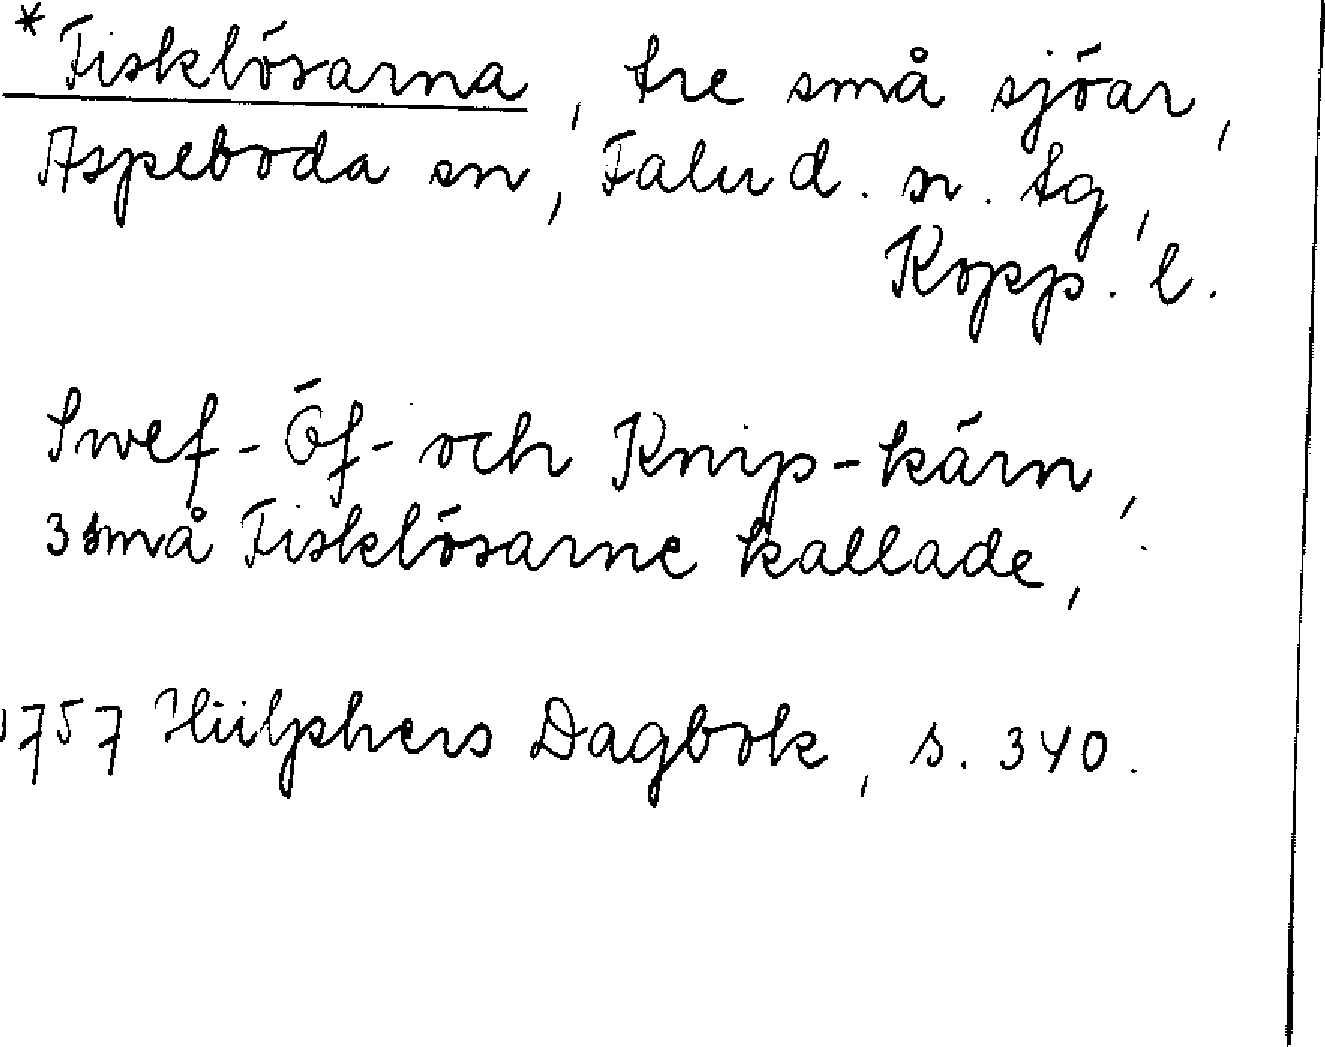 *Fisklösarna, tre små sjöar,
Aspeboda sn, Falu d. s. tg,
Kopp. l.
Swef- Öf- och Knip-kärn,
3 små Fisklösarne kallade,
1757 Hülphers Dagbok, s. 340.